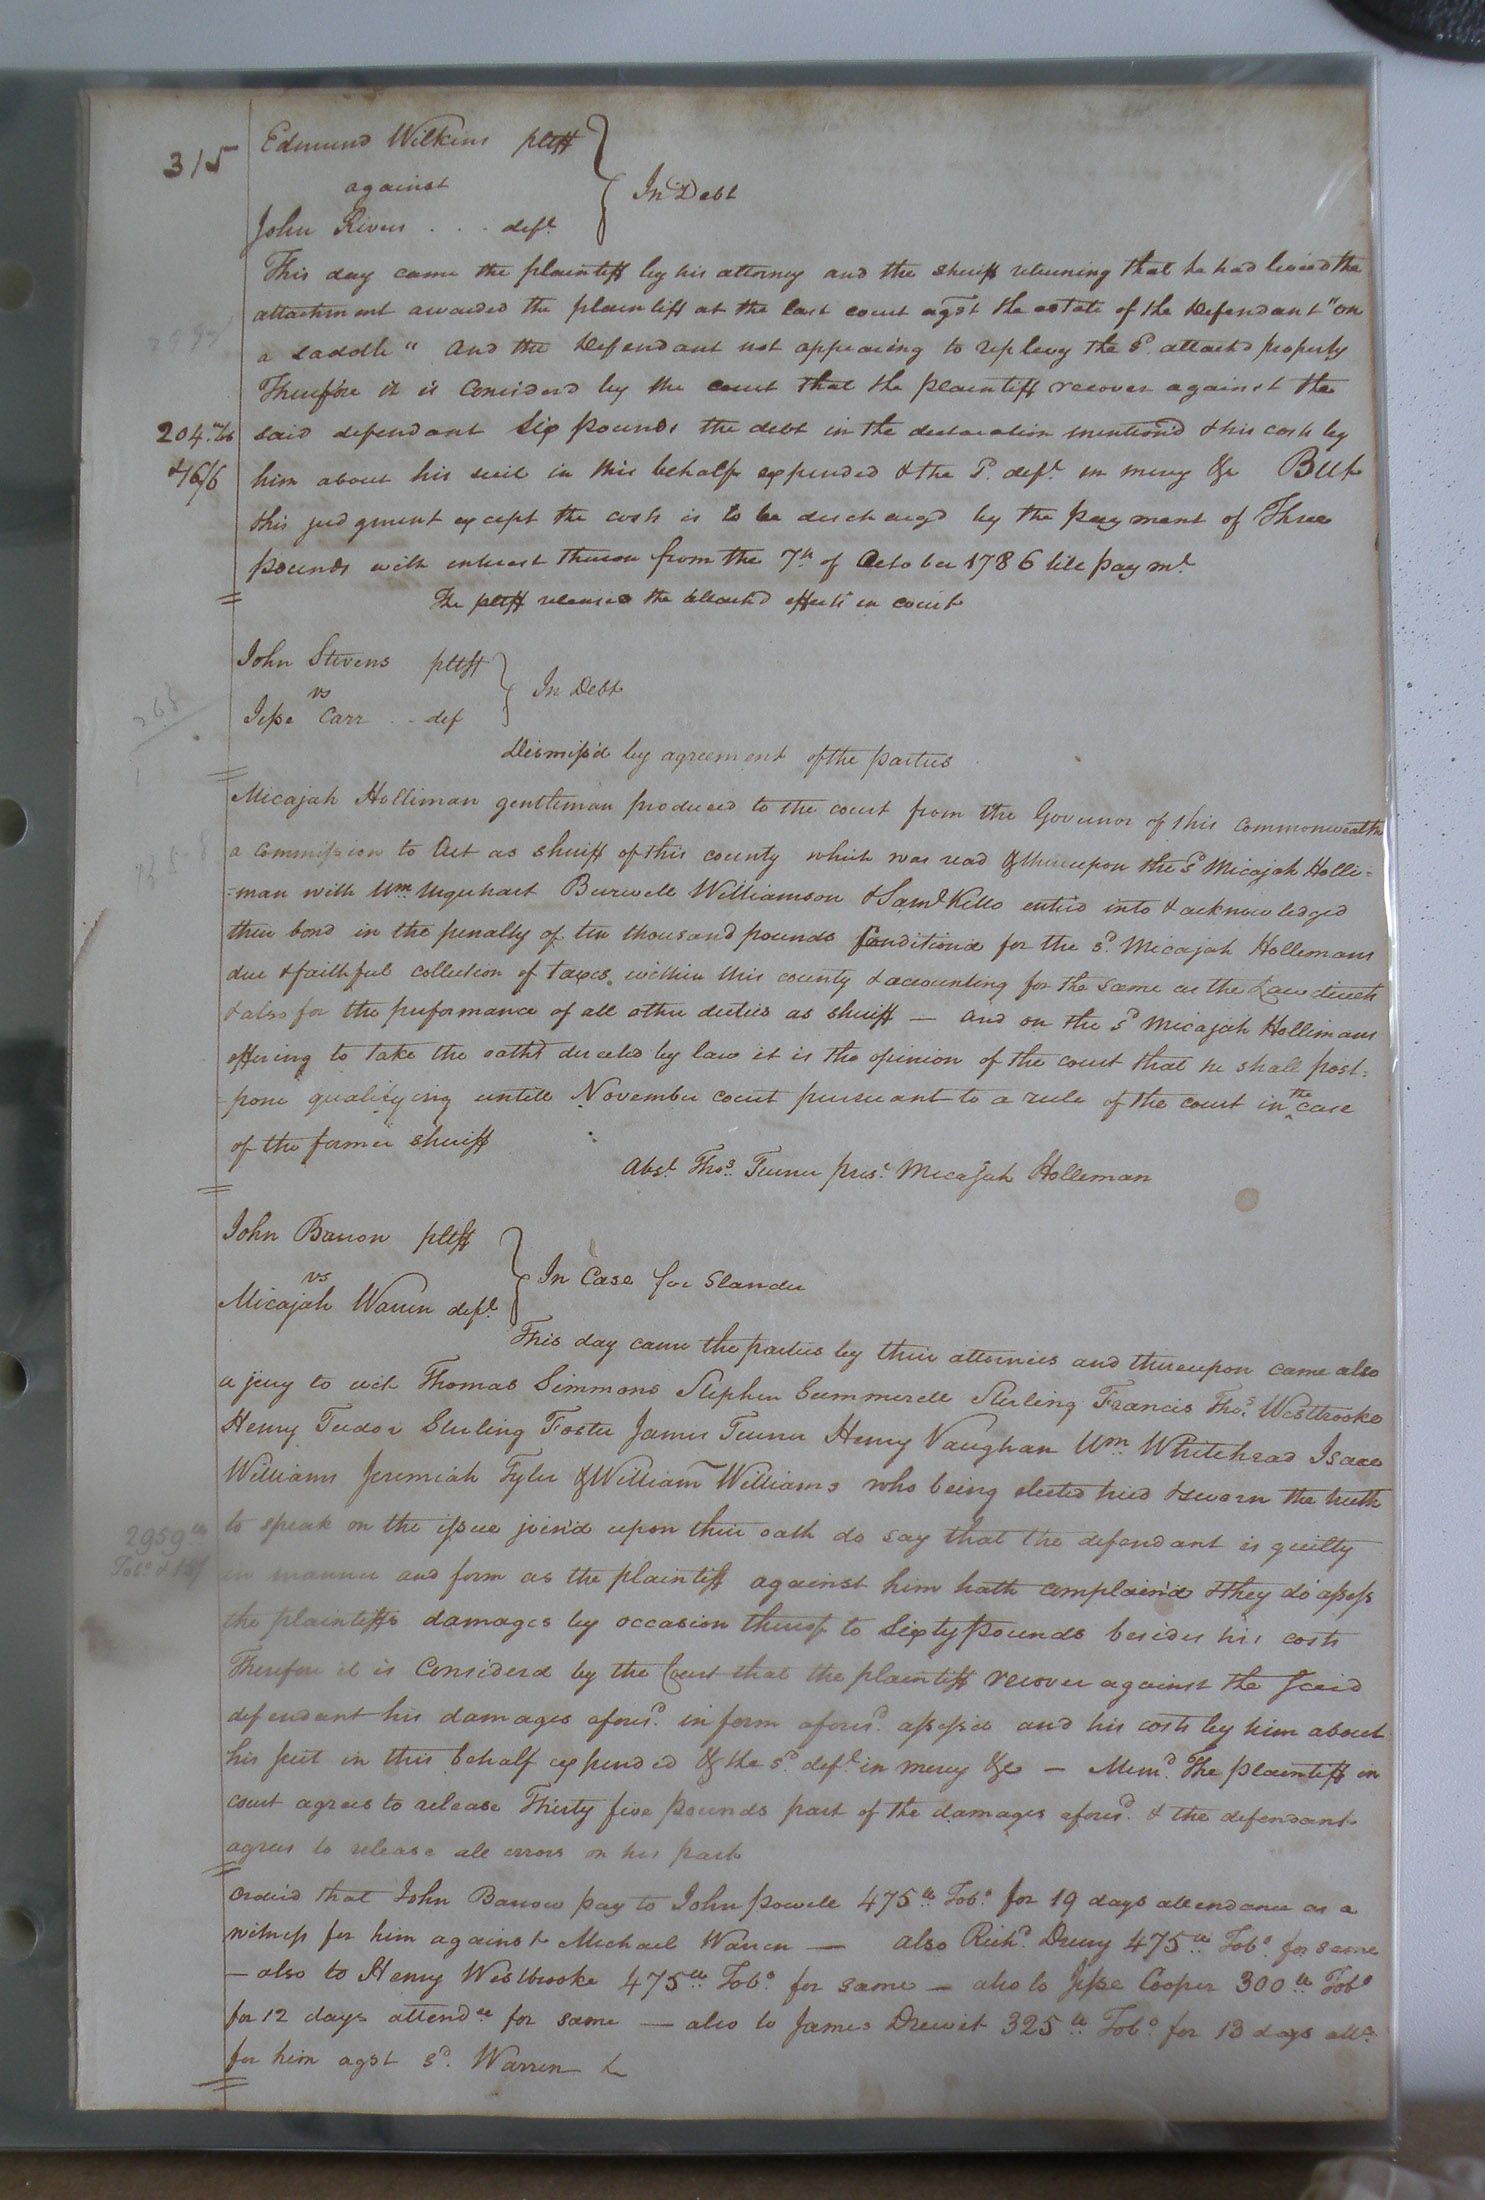 315
Edmund Wilkins pltff
against
In Debt
John Rivers . . . deft
This day came the plaintiff by his attorney and the sheriff returning that he had levied the
attachment awarded the plaintiff at the last court agst the estate of the defendant "on
a saddle" And the defendant not appearing to replevy the sd attachd property
Therefore it is Considerd by the court that the plaintiff recover against the
204 lb
said defendant Six pounds the debt in the declaration mention'd & his costs by
him about his suit in this behalf expended & the sd deft in mercy &c But
this judgment except the costs is to be discharg'd by the payment of Three
pounds with interest thereon from the 7th of October 1786 till paymt
The pltff releases the attachd effects in court
John Stevens pltff
vs
In Debt
Jesse Carr . . def
Dismiss'd by agreement of the parties
Micajah Holliman gentleman produced to the court from the Governor of this Commonwealth
a commission to Act as sheriff of this county which was read & thereupon the sd Micajah Holli=
=man with Wm Urquhart Burwell Williamson & Saml Kello enter'd into & acknowledged
their bond in the penalty of ten thousand pounds Conditiond for the sd Micajah Hollemans
due & faithful collection of taxes within this county & accounting for the same as the Law directs
& also for the performance of all other duties as sheriff — and on the sd Micajah Hollimans
offering to take the oaths directed by law it is the opinion of the court that he shall post=
=pone qualifying untill November court pursuant to a rule of the court in the case
of the former sheriff
Abst Thos Turner prest Micajah Holleman
John Barrow pltff
vs
In Case for Slander
Micajah Warren deft
This day came the parties by their attornies and thereupon came also
a jury to wit Thomas Simmons Stephen Summerell Sterling Francis Thos Westbrooke
Henry Tudor Sterling Foster James Turner Henry Vaughan Wm Whitehead Isaac
Williams Jeremiah Tyler & William Williams who being elected tried & sworn the truth
2959 lb
to speak on the issue join'd upon their oath do say that the defendant is guilty
Tobo & 15/
in manner and form as the plaintiff against him hath complain'd & they do assess
the plaintiffs damages by occasion thereof to Sixty pounds besides his costs
Therefore it is Considerd by the Court that the plaintiff recover against the said
defendant his damages aforesd in form aforesd assessed and his costs by him about
his suit in this behalf expended & the sd deft in mercy &c — Memd The plaintiff in
court agrees to release Thirty five pounds part of the damages aforesd & the defendant
agrees to release all errors on his part
Order'd that John Barrow pay to John powell 475 lb Tobo for 19 days attendance as a
witness for him against Michael Warren — also Richd Drury 475 lb Tobo for same
— also to Henry Westbrooke 475 lb Tobo for same — also to Jesse Cooper 300 lb Tobo
for 12 days attendce for same — also to James Drewit 325 lb Tobo for 13 days attce
for him agst sd Warren